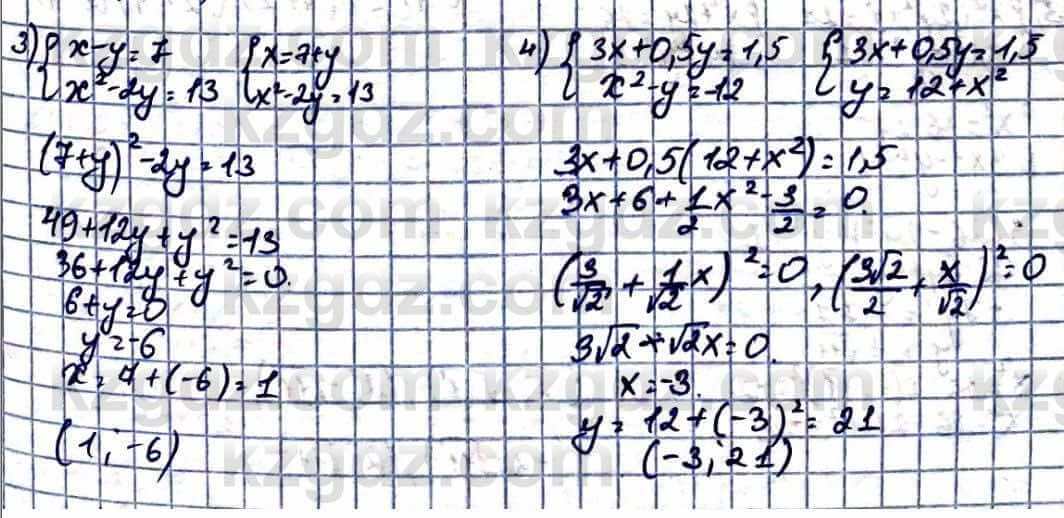 3) { x-y=7 { x=7+y
x²-2y=13 x²-2y=13
(7+y)²-2y=13
49+12y+y²=13
36+12y+y²=0.
6+y=0
y=-6
x=7+(-6)=1
(1; -6)
4) { 3x+0,5y=1,5 { 3x+0,5y=1,5
x²-y=-12 y=12+x²
3x+0,5(12+x²)=1,5
3x+6+1/2x²-3/2=0.
(3/√2+1/√2x)²=0, (3√2/2+x/√2)²=0
3√2+√2x=0.
x=-3.
y=12+(-3)²=21
(-3; 21)
kzgdz.com